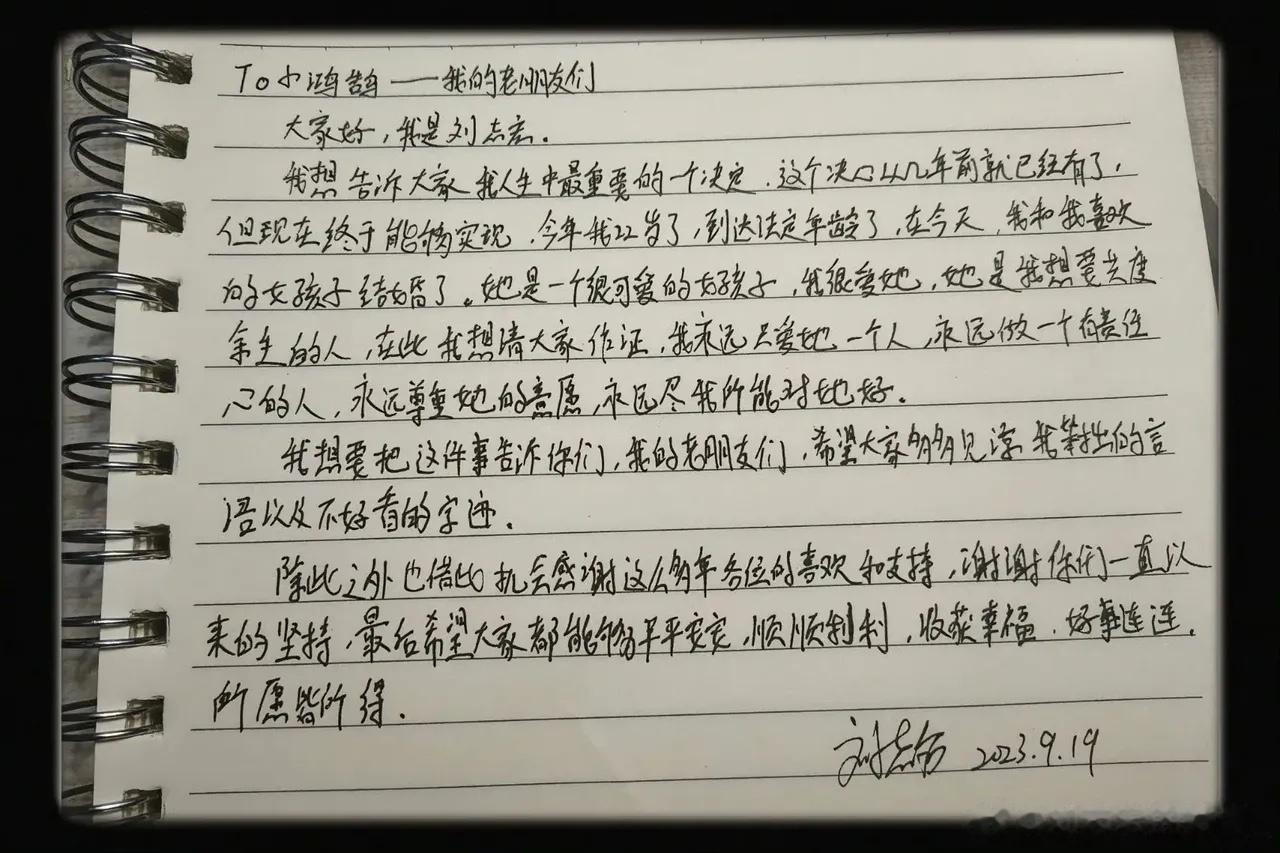 To小鸿鹄——我的老朋友们
大家好，我是刘志宏。
我想告诉大家我人生中最重要的一个决定，这个决心从几年前就已经有了，
但现在终于能够实现，今年我22岁了，到达法定年龄了，在今天，我和我喜欢
的女孩子结婚了。她是一个很可爱的女孩子，我很爱她，她是我想要共度
余生的人，在此我想请大家作证，我永远只爱她一个人，永远做一个有责任
心的人，永远尊重她的意愿，永远尽我所能对她好。
我想要把这件事告诉你们，我的老朋友们，希望大家多多见谅我笨拙的言
语以及不好看的字迹。
除此之外也借此机会感谢这么多年各位的喜欢和支持，谢谢你们一直以
来的坚持，最后希望大家都能够平平安安，顺顺利利，收获幸福，好事连连，
所愿皆所得。
刘志宏 2023.9.19